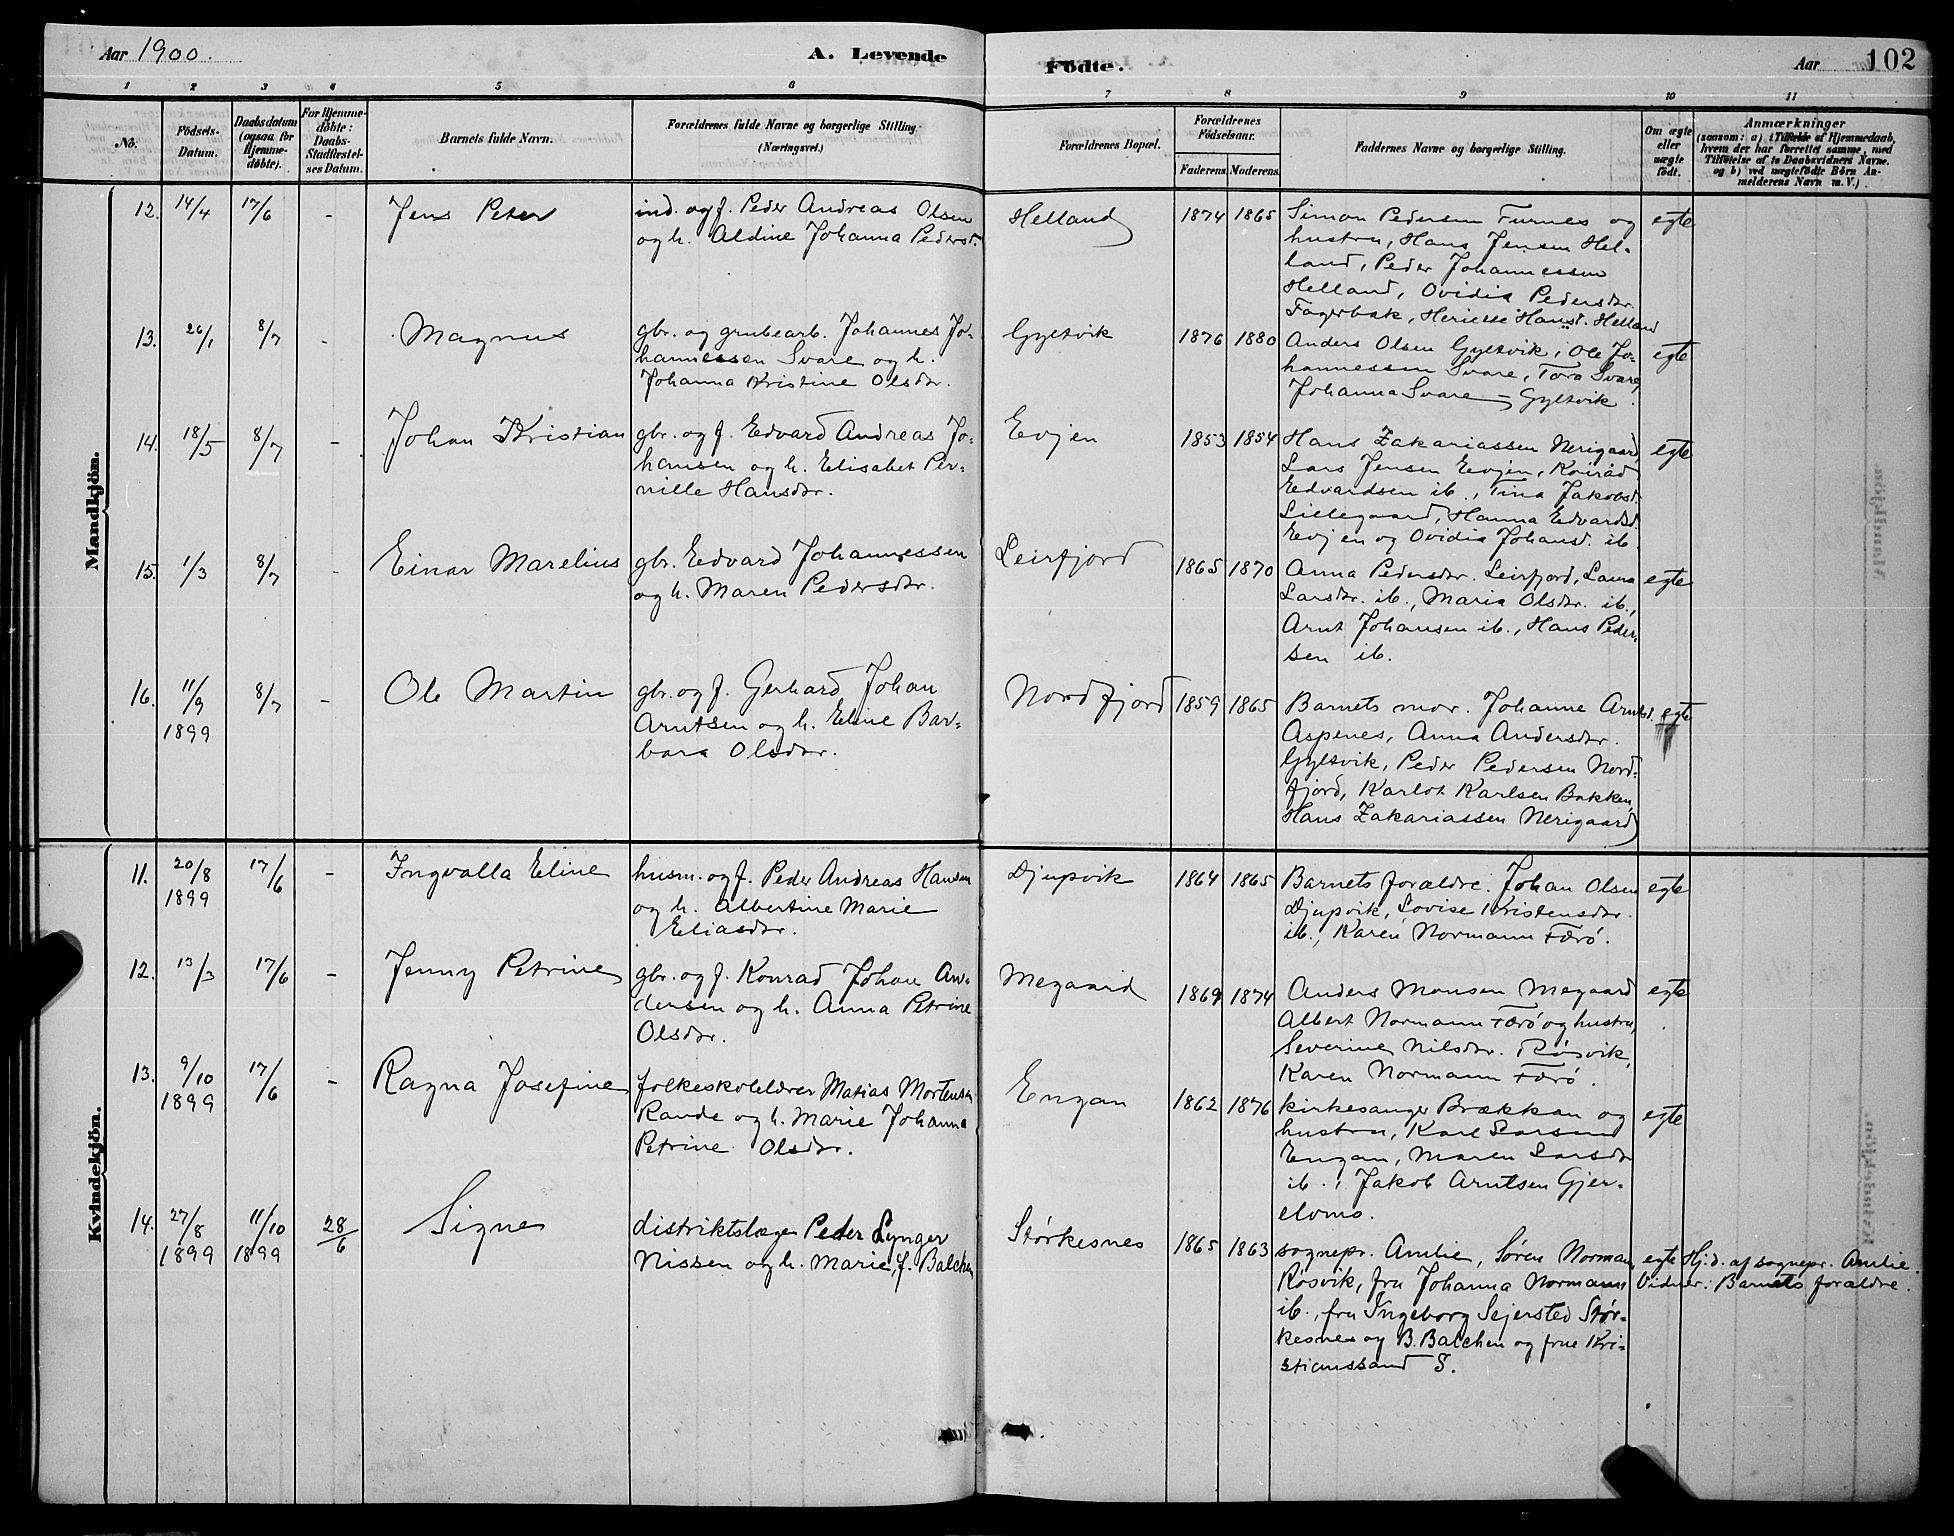 Aar 1900.
A. Levende
Födte.
Aar
102
1 2 3 4 5 6
7 8 9 10 11
No.
Födsels-
Datum.
Daabsdatum
(ogsaa for
Hjemme-
døbte).
For Hjemme-
døbte:
Daabs-
Stadfæstel-
ses Datum.
Barnets fulde Navn.
Forældrenes fulde Navne og borgerlige Stilling
(Næringsvei.)
Forældrenes Bopæl.
Forældrenes
Födselsaar.
Faderens. Moderens.
Faddernes Navne og borgerlige Stilling.
Om ægte
eller
uægte
født.
Anmærkninger
(saasom: a) i Tilfælde af Hjemmedaab,
hvem der har forrettet samme, med
Tilföielse af to Daabsvidners Navne.
og b) ved uægtefödte Börn An-
melderens Navn m. V.)
Mandkjön.
12. 14/4 17/6 - Jens Peter
ind. og f. Peder Andreas Olsen
og h. Aldine Johanna Pedersd.
Helland 1874 1865
Simon Pedersen Furnes og
hustru, Hans Jensen Hel-
land, Peder Johannessen
Helland, Ovidia Pedersdr.
Fagerbak, Hansd. Helland
egte
13. 26/1 8/7 - Magnus
gbr. og grubearb. Johannes Jo-
hannessen Svare og h.
Johanna Kristine Olsdr.
Gyltvik 1876 1880
Anders Olsen Gyltvik, Ole Jo-
hannessen Svare, Tora Svare,
Johanna Svare - Gyltvik.
egte
14. 18/5 8/7 - Johan Kristian
gbr. og f. Edvard Andreas Jo-
hansen og h. Elisabet Per-
nille Hansdr.
Evjen 1853 1854
Hans Zakariassen Nerigaard
Lars Jensen Evjen, Konrad
Edvardsen ib., Tina Jakobsd.
Lillegaard, Hanna Edvardsd.
Evjen og Ovidia Johansd. ib.
egte
15. 1/3 8/7 - Einar Marelius
gbr. Edvard Johannessen
og h. Maren Pedersdr.
Leirfjord 1865 1870
Anna Pedersdr. Leirfjord, Laura
Larsdr. ib., Maria Olsdr. ib.,
Arnt Johansen ib., Hans Peder-
sen ib.
egte
16. 11/9 8/7 - Ole Martin
1899
gbr. og f. Gerhard Johan
Arntsen og h. Eline Bar-
bara Olsdr.
Nordfjord 1859 1865
Barnets mor. Johanne Arntsd.
Aspenes, Anna Andersdr.
Gyltvik, Peder Pedersen Nord-
fjord, Karlot Karlsen Bakken,
Hans Zakariassen Nerigaard
egte
Kvindekjön.
11. 20/8 17/6 - Ingvalla Eline
1899
husm. og f. Peder Andreas Hansen
og h. Albertine Marie
Eliasdr.
Djupvik 1864 1865
Barnets forældre. Johan Olsen
Djupvik, Lovise Kristensdr.
ib., Karen Normann Færö.
egte
12. 13/3 17/6 - Jenny Petrine
gbr. og f. Konrad Johan An-
dersen og h. Anna Petrine
Olsdr.
Megaard 1869 1874
Anders Monsen Megaard
Albert Normann Færö og hustru,
Severine Nilsdr. Røsvik,
Karen Normann Færö.
egte
13. 9/10 17/6 - Ragna Josefine
1899
folkeskolelærer Matias Mortensen
Rande og h. Marie Johanna
Petrine Olsdr.
Engan 1862 1876
kirkesanger Brækkan og
hustru, Karl Larsen
Engan, Maren Larsdr
ib., Jakob Arntsen Gjer-
elvmo.
egte
14. 27/8 11/10 28/6 Signe
1899 1899
distriktslæge Peder Lynger
Nissen og h. Marie, f. Balchen
Størkesnes 1865 1863
sognepr. Amlie, Søren Norman
Røsvik, fru Johanna Normann
ib., fru Ingeborg Sejersted Stør-
kesnes og B. Balchen og frue Kri-
stianssand S.
egte Hj.d. af sognepr. Amlie.
Vidner: Barnets forældre.